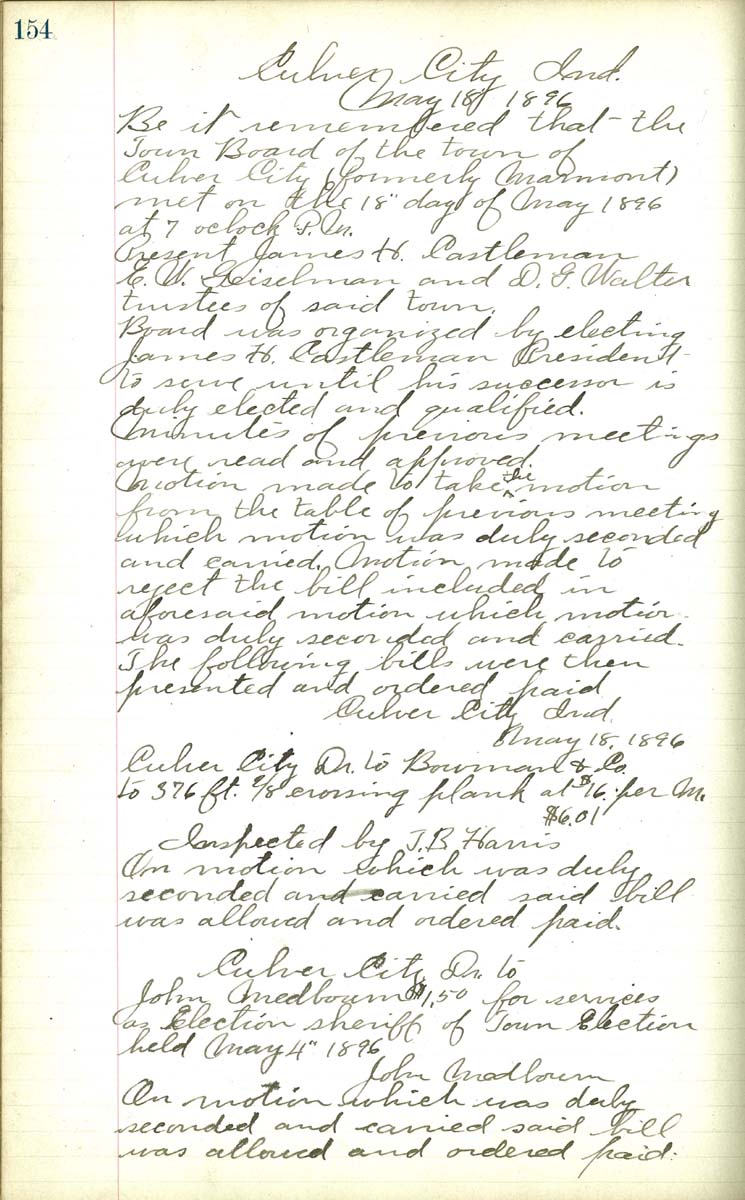 154
Culver City Ind.
May 18" 1896
Be it remembered that the
Town Board of the town of
Culver City (formerly Marmont)
met on the 18" day of May 1896
at 7 oclock P.M.
Present James H. Castleman
E. W. Geiselman and D. G. Walter
trustees of said town.
Board was organized by electing
James H. Castleman President
to serve until his successor is
duly elected and qualified.
Minutes of previous meetings
were read and approved.
Motion made to take the motion
from the table of previous meeting
which motion was duly seconded
and carried. Motion made to
reject the bill included in
aforesaid motion which motion
was duly seconded and carried.
The following bills were then
presented and ordered paid
Culver City Ind.
May 18, 1896
Culver City Dr. to Bowman & Co.
to 376 ft. 2/8 crossing plank at $16. per M.
$6.01
Inspected by J. B Harris
On motion which was duly
seconded and carried said bill
was allowed and ordered paid.
Culver City Dr. to
John Medbourn $1.50 for services
as Election sheriff of Town Election
held May 4" 1896
John Medbourn
On motion which was duly
seconded and carried said bill
was allowed and ordered paid.